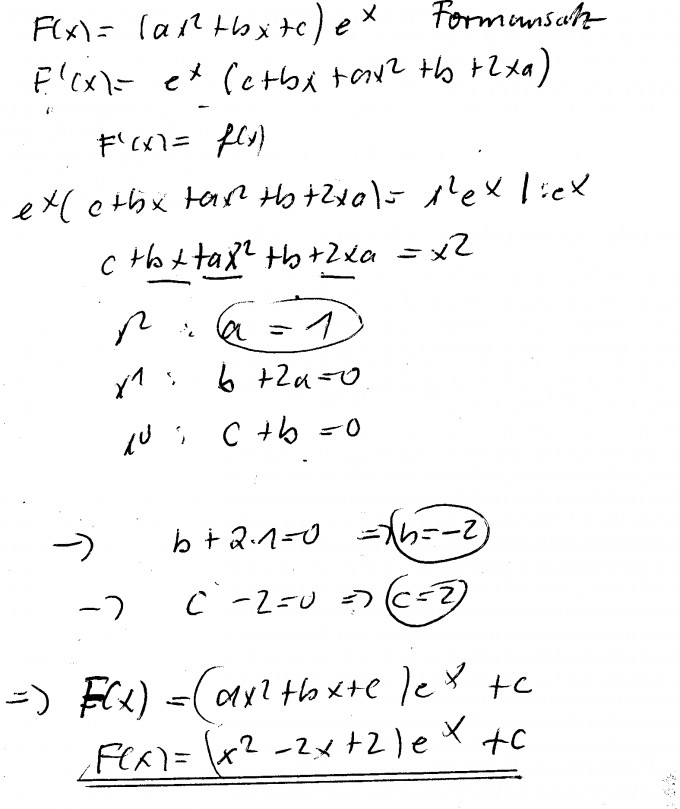 F(x) = (ax² + bx + c) e^x Formansatz
F'(x) = e^x (c + bx + ax² + b + 2xa)
F'(x) = f(x)
e^x ( c + bx + ax² + b + 2xa) = x² e^x | : e^x
c + bx + ax² + b + 2xa = x²
x² : a = 1
x¹ : b + 2a = 0
x⁰ : c + b = 0
→ b + 2·1 = 0 ⇒ b = -2
→ c - 2 = 0 ⇒ c = 2
⇒ F(x) = (ax² + bx + c) e^x + c
F(x) = (x² - 2x + 2) e^x + c